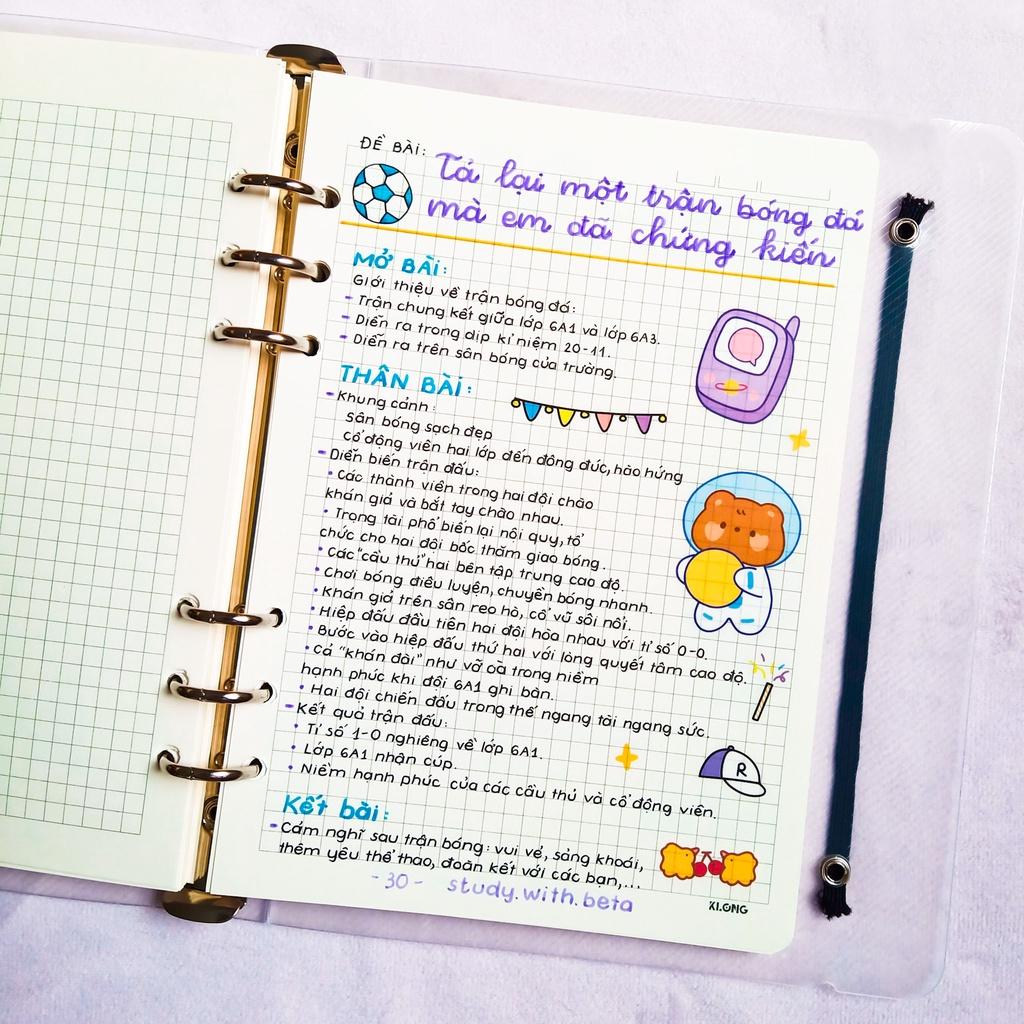 ĐỀ BÀI:
Tả lại một trận bóng đá
mà em đã chứng kiến
MỞ BÀI:
Giới thiệu về trận bóng đá:
- Trận chung kết giữa lớp 6A1 và lớp 6A3.
- Diễn ra trong dịp kỉ niệm 20-11.
- Diễn ra trên sân bóng của trường.
THÂN BÀI:
- Khung cảnh:
Sân bóng sạch đẹp
Cổ động viên hai lớp đến đông đúc, hào hứng
- Diễn biến trận đấu:
• Các thành viên trong hai đội chào
khán giả và bắt tay chào nhau.
• Trọng tài phổ biến lại nội quy, tổ
chức cho hai đội bốc thăm giao bóng.
• Các "cầu thủ" hai bên tập trung cao độ.
• Chơi bóng điêu luyện, chuyền bóng nhanh.
• Khán giả trên sân reo hò, cổ vũ sôi nổi.
• Hiệp đấu đầu tiên hai đội hòa nhau với tỉ số 0-0.
• Bước vào hiệp đấu thứ hai với lòng quyết tâm cao độ.
• Cả "khán đài" như vỡ oà trong niềm
hạnh phúc khi đội 6A1 ghi bàn.
• Hai đội chiến đấu trong thế ngang tài ngang sức.
- Kết quả trận đấu:
• Tỉ số 1-0 nghiêng về lớp 6A1.
• Lớp 6A1 nhận cúp.
• Niềm hạnh phúc của các cầu thủ và cổ động viên.
R
Kết bài:
- Cảm nghĩ sau trận bóng: vui vẻ, sảng khoái,
thêm yêu thể thao, đoàn kết với các bạn,...
- 30 - study.with.beta
KI.ONG